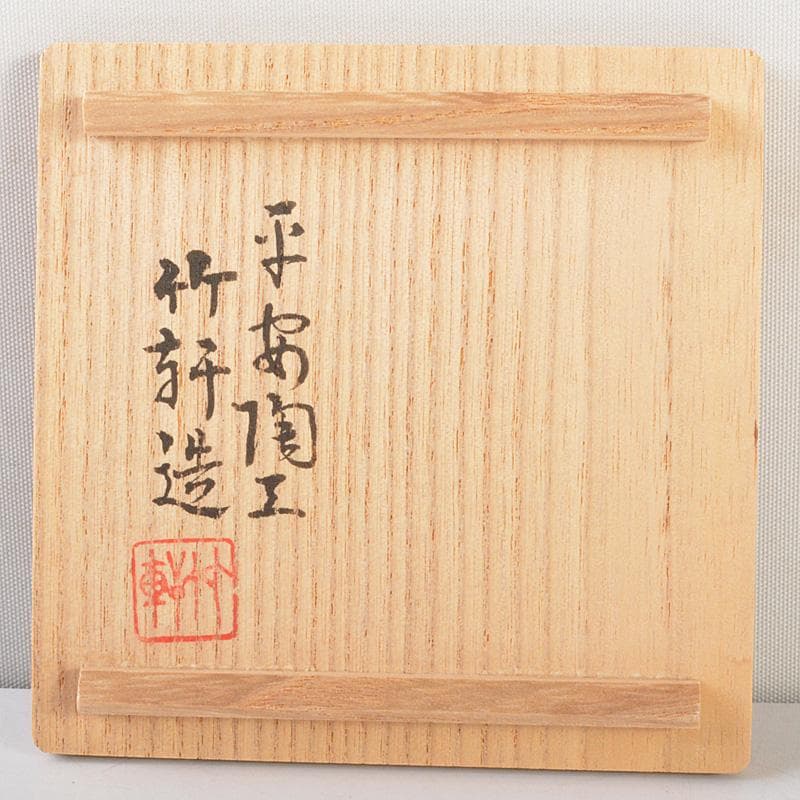 平安陶工
竹軒造
竹軒